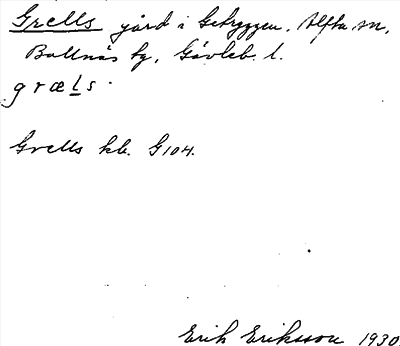 Grells gård i Getryggen, Alfta sn,
Bollnäs kg, Gävleb. l.
græls.
Grells kb. G104.
Erik Eriksson 1930.